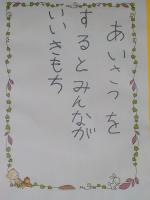 あいさつを
するとみんなが
いいきもち